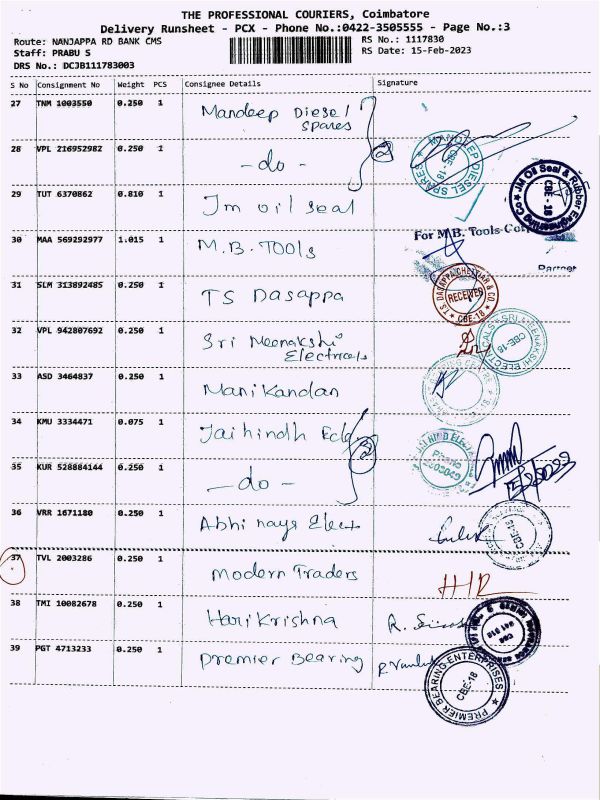 THE PROFESSIONAL COURIERS, Coimbatore
Delivery Runsheet - PCX - Phone No.:0422-3505555 - Page No.:3
Route: NANJAPPA RD BANK CMS
RS No.: 1117830
Staff: PRABU S
RS Date: 15-Feb-2023
DRS No.: DCJB111783003
S No Consignment No Weight PCS Consignee Details Signature
27 TNM 1003550 0.250 1 Mandeep Diesel
Spares
28 VPL 216952982 0.250 1 -do- 2
MANDEEP DIESEL SPARES CBE-18
29 TUT 6370862 0.810 1 Jm oil seal
JM Oil Seal & Rubber Engineering Co CBE - 18
30 MAA 569292977 1.015 1 M.B. TOOLS
For M.B. Tools
Partner
31 SLM 313892485 0.250 1 TS Dasappa
T.S. DASAPPA CHETTIAR & CO. RECEIVED CBE-18
32 VPL 942807692 0.250 1 Sri Meenakshi
Electricals
SRI MEENAKSHI ELECTRICALS CBE-18
33 ASD 3464837 0.250 1 Manikandan
34 KMU 3334471 0.075 1 Jaihindh Eclg
35 KUR 528884144 0.250 1 -do- 2
36 VRR 1671180 0.250 1 Abhinaya Elect
CBE-18
37 TVL 2003286 0.250 1 Modern Traders
38 TMI 10082678 0.250 1 Harikrishna
39 PGT 4713233 0.250 1 Premier Bearing
PREMIER BEARING ENTERPRISES CBE-18